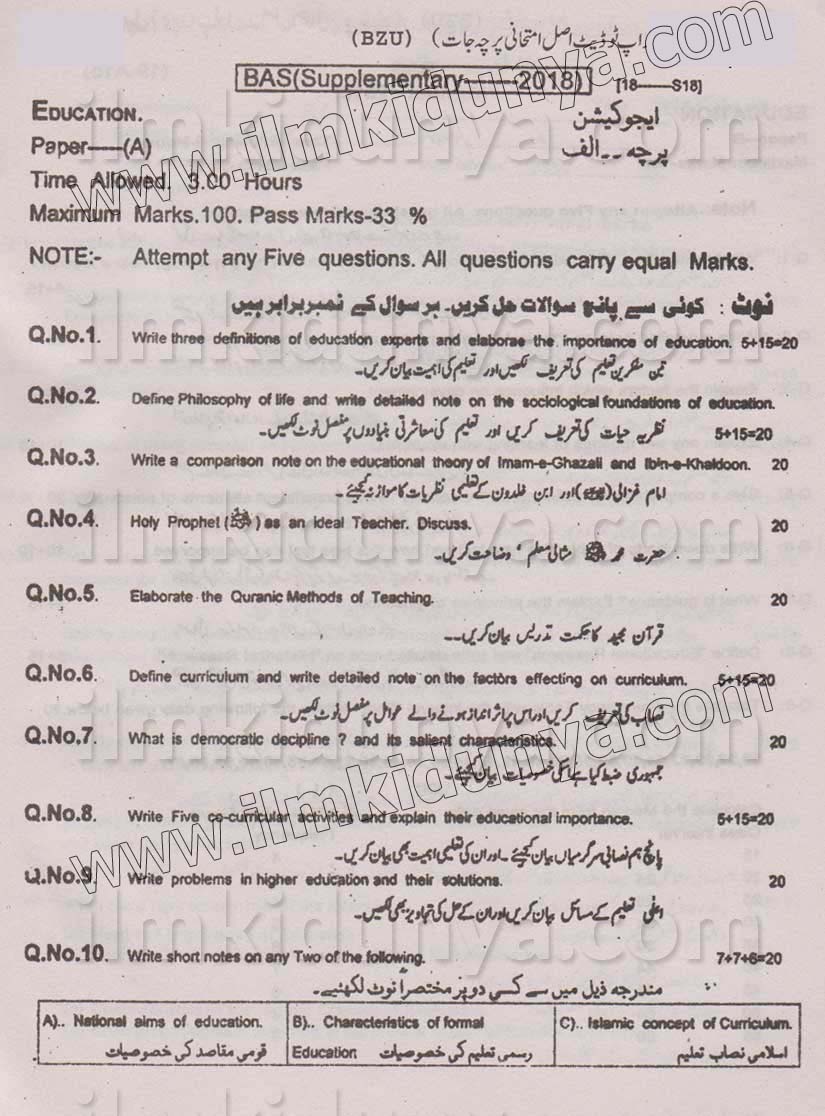 (BZU) اپ ٹو ڈیٹ اصل امتحانی پرچہ جات)
BAS(Supplementary-------2018) [18------S18]
EDUCATION. ایجوکیشن
Paper----(A) پرچہ ۔۔ الف
Time Allowed. 3.00 Hours
Maximum Marks.100. Pass Marks-33 %
NOTE:- Attempt any Five questions. All questions carry equal Marks.
نوٹ : کوئی سے پانچ سوالات حل کریں۔ ہر سوال کے نمبر برابر ہیں
Q.No.1. Write three definitions of education experts and elaborae the importance of education. 5+15=20
تین مفکرین تعلیم کی تعریف لکھیں اور تعلیم کی اہمیت بیان کریں۔
Q.No.2. Define Philosophy of life and write detailed note on the sociological foundations of education.
نظریہ حیات کی تعریف کریں اور تعلیم کی معاشرتی بنیادوں پر مفصل نوٹ لکھیں۔ 5+15=20
Q.No.3. Write a comparison note on the educational theory of Imam-e-Ghazali and Ibn-e-Khaldoon. 20
امام غزالی اور ابن خلدون کے تعلیمی نظریات کا موازنہ کیجئیے۔
Q.No.4. Holy Prophet (ﷺ) as an ideal Teacher. Discuss. 20
حضرت محمد ﷺ مثالی معلم ‘ وضاحت کریں۔
Q.No.5. Elaborate the Quranic Methods of Teaching. 20
قرآن مجید کا حکمت تدریس بیان کریں۔۔
Q.No.6. Define curriculum and write detailed note on the factors effecting on curriculum. 5+15=20
نصاب کی تعریف کریں اور اس پر اثر انداز ہونے والے عوامل پر مفصل نوٹ لکھیں۔
Q.No.7. What is democratic decipline ? and its salient characteristics. 20
جمہوری ضبط کیا ہے؟ انکی خصوصیات بیان کیجئیے۔
Q.No.8. Write Five co-curricular activities and explain their educational importance. 5+15=20
پانچ ہم نصابی سرگرمیاں بیان کیجئیے۔ اور ان کی تعلیمی اہمیت بھی بیان کریں۔
Q.No.9. Write problems in higher education and their solutions. 20
اعلٰی تعلیم کے مسائل بیان کریں اور ان کے حل کی تجاویز بھی لکھیں۔
Q.No.10. Write short notes on any Two of the following. 7+7+6=20
مندرجہ ذیل میں سے کسی دو پر مختصراً نوٹ لکھئیے۔
A).. National aims of education. B).. Characteristics of formal C).. Islamic concept of Curriculum.
قومی مقاصد کی خصوصیات Education رسمی تعلیم کی خصوصیات اسلامی نصاب تعلیم
www.ilmkidunya.com
www.ilmkidunya.com
ilmkidunya.com
ilmkidunya.com
ilmkidunya.com
ilmkidunya.com
ilmkidunya.com